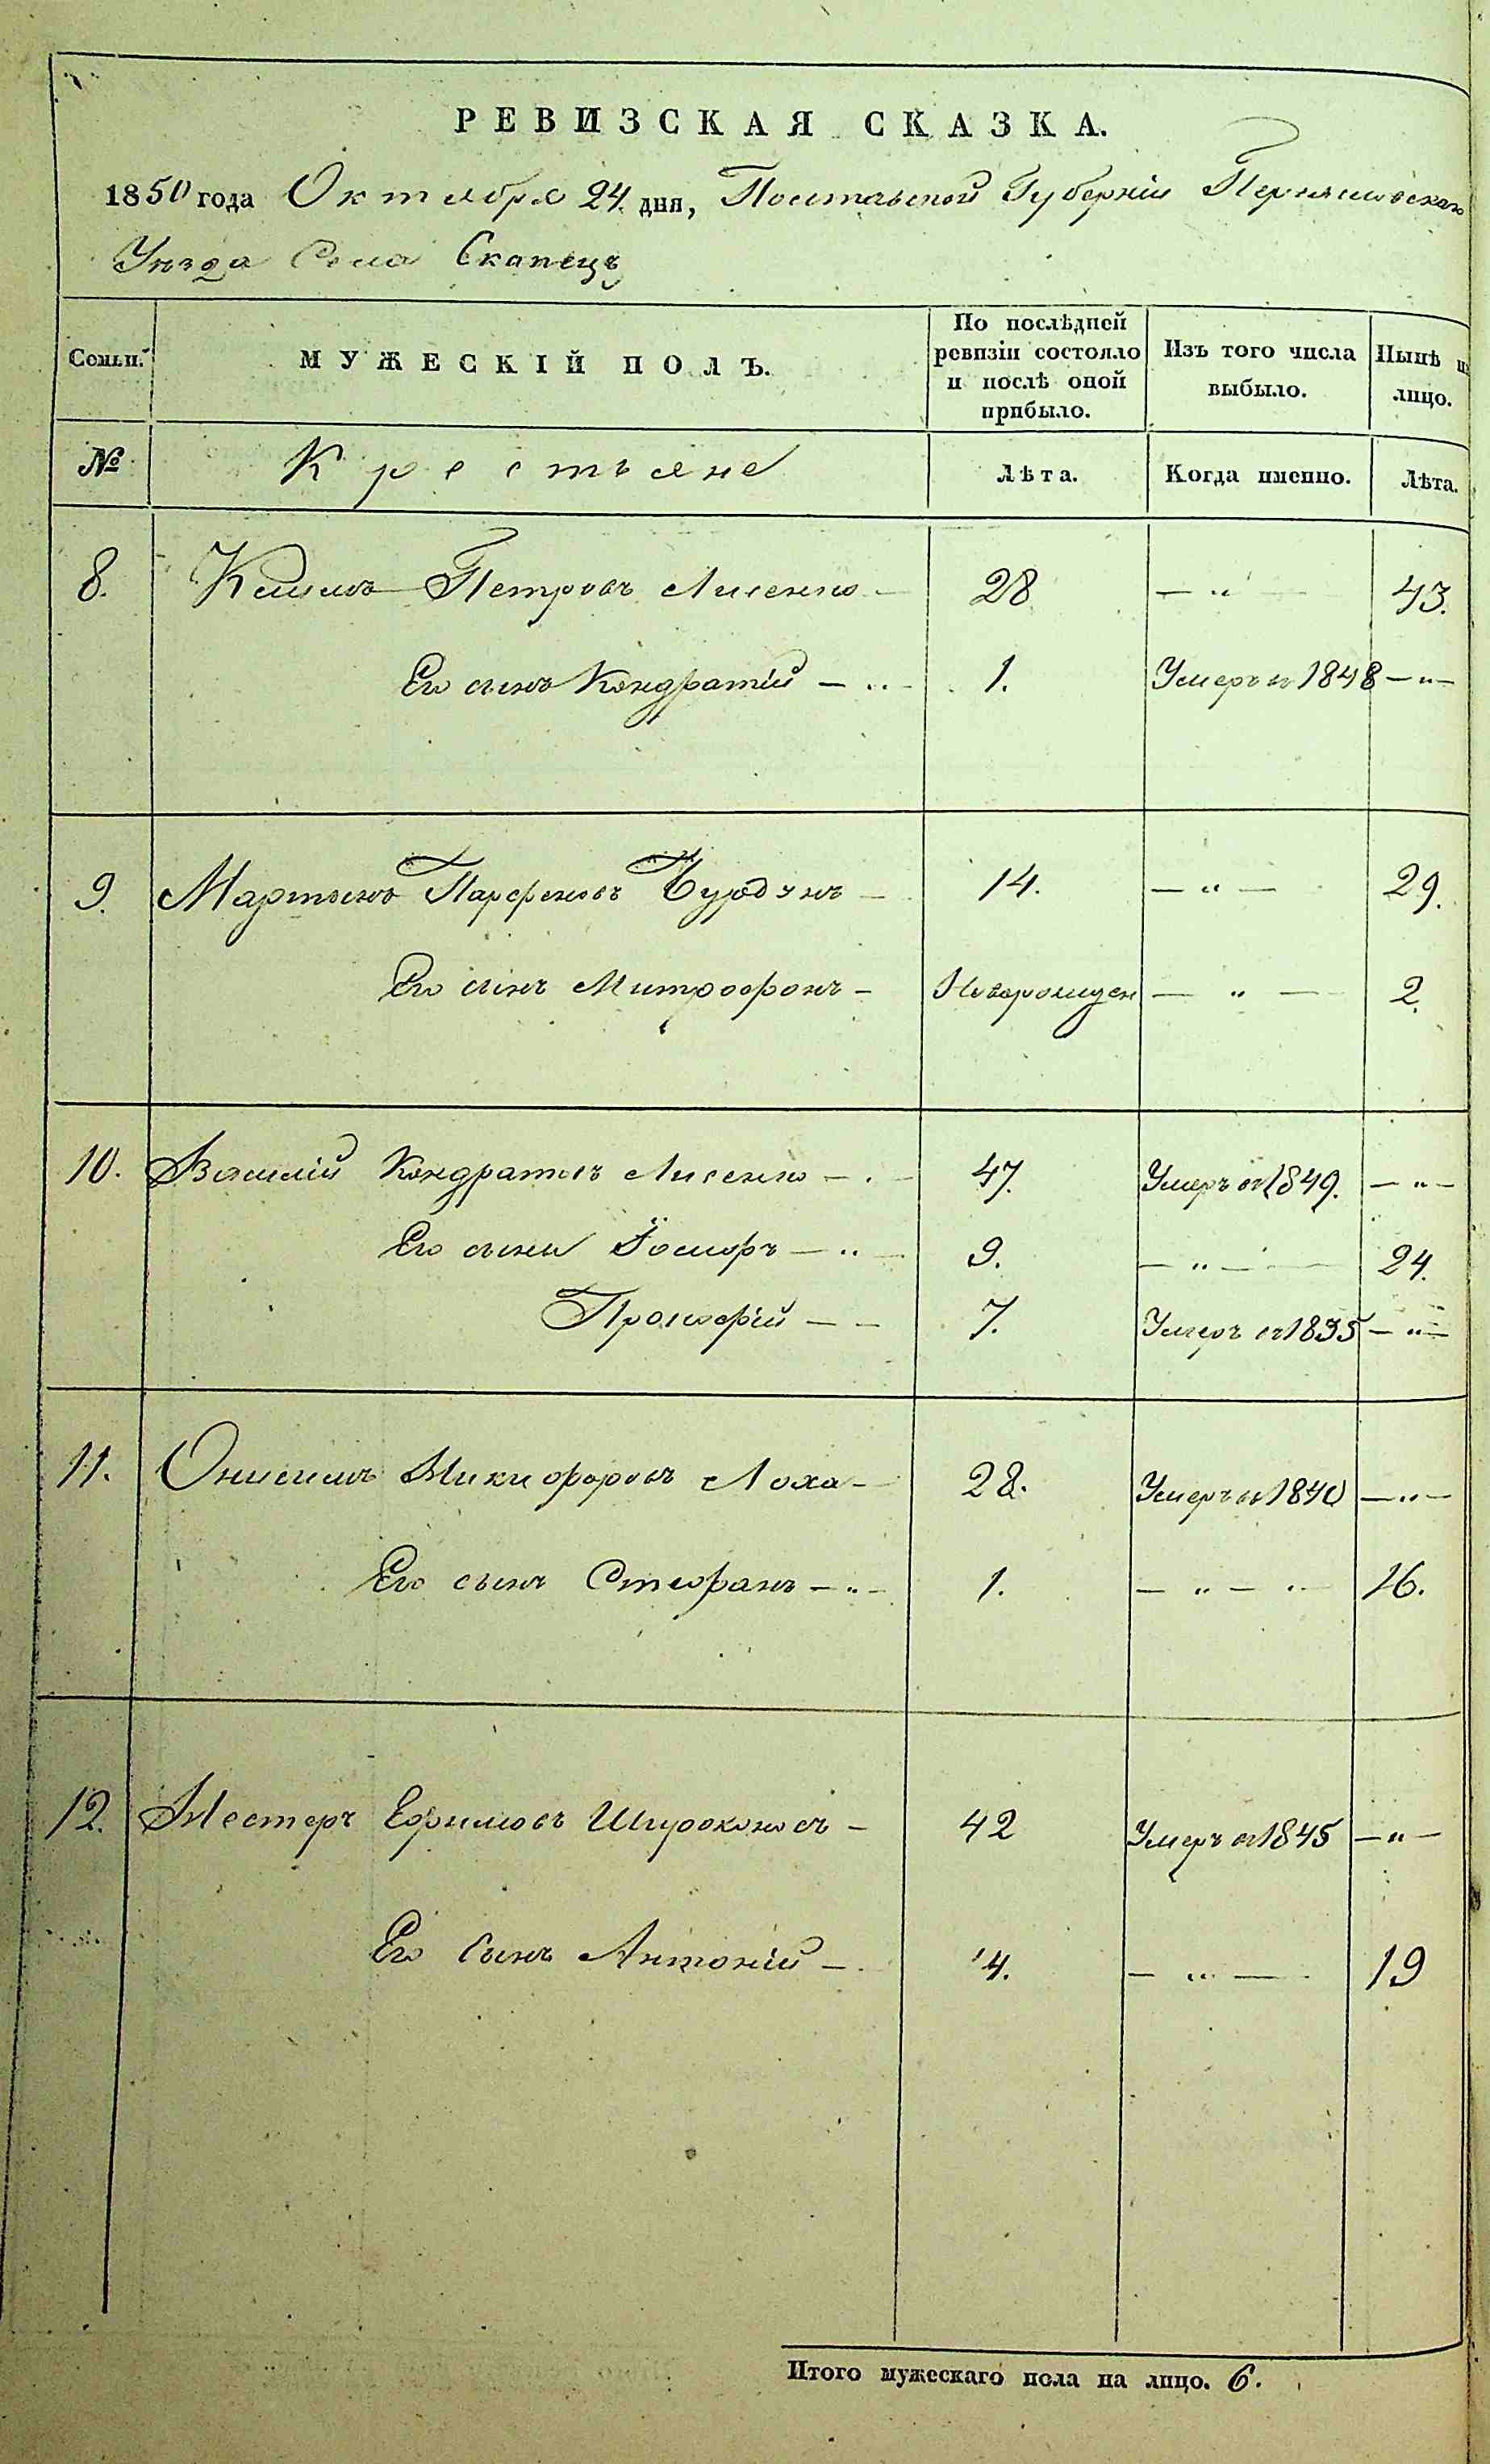 РЕВИЗСКАЯ СКАЗКА.
1850 года Октября 24 дня, Полтавской Губерніи
Уѣзда Села Скапецъ
Семьи. МУЖЕСКІЙ ПОЛЪ. По послѣдней ревизіи состояло и послѣ оной прибыло. Изъ того числа выбыло. Нынѣ на лицо.
№ Крестьяне Лѣта. Когда именно. Лѣта.
8. Климъ Петровъ Лисенко — 28 — „ — 43.
Его сынъ Кондратій — „ — 1. Умеръ въ 1848 — „ —
9. Мартынъ Парфеновъ — 14. — „ — 29.
Его сынъ Митрофанъ — Новорожден — „ — 2.
10. Василій Кондратьевъ Лисенко — 47. Умеръ въ 1849. — „ —
Его сыны — „ — 9. — „ — 24.
Прокофій — — 7. Умеръ въ 1835 — „ —
11. Онисимъ Никифоровъ Лоха — 28. Умеръ въ 1840 — „ —
Его сынъ Стефанъ — „ — 1. — „ — „ — 16.
12. Нестеръ Ефимовъ Широконосъ — 42 Умеръ въ 1845 — „ —
Его сынъ Антоній — 4. — „ — 19
Итого мужескаго пола на лицо. 6.